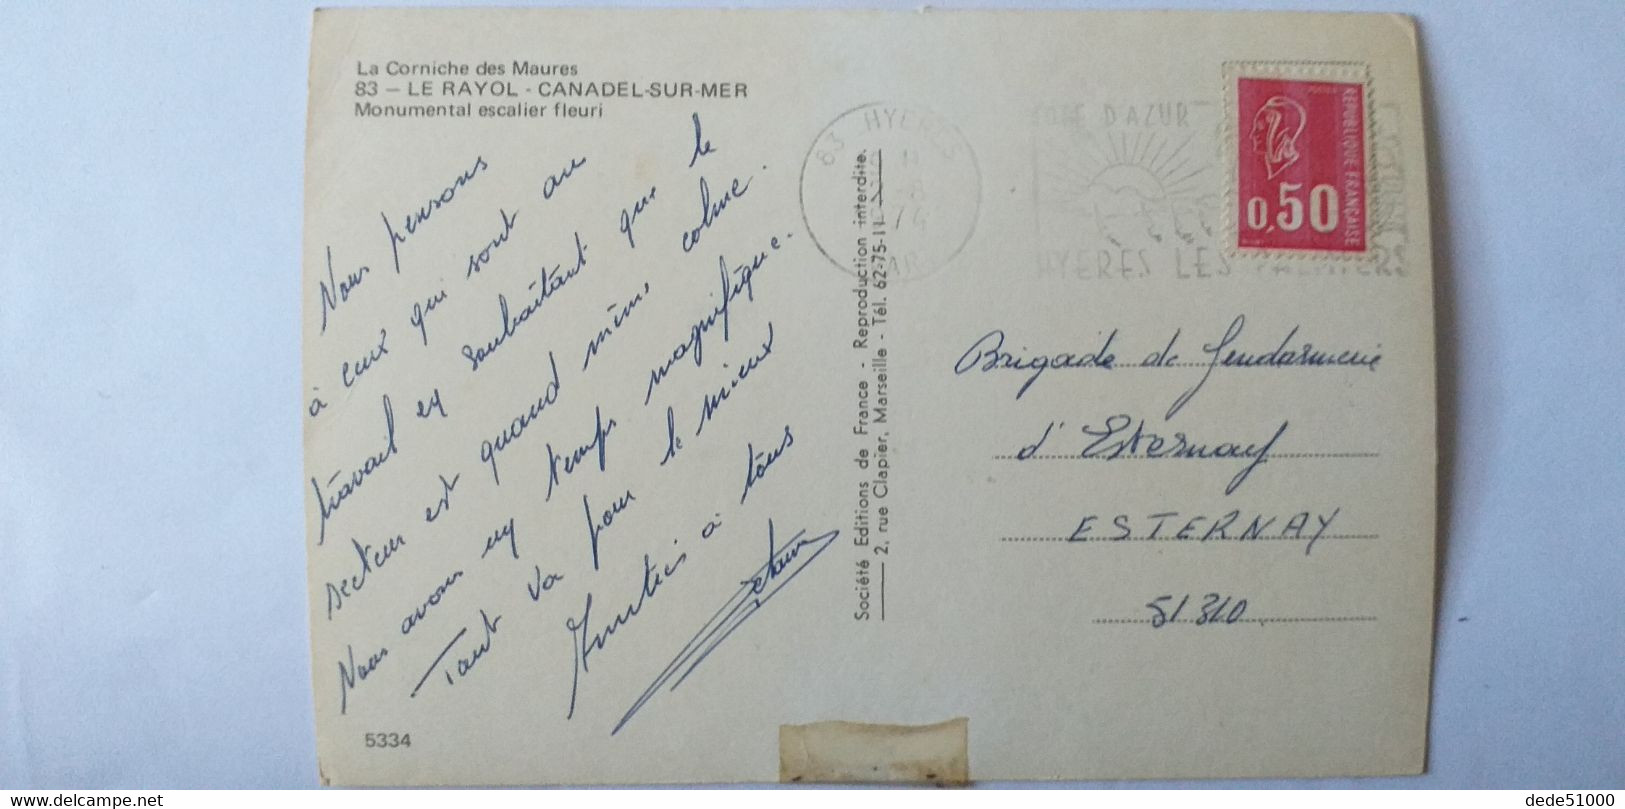 La Corniche des Maures
83 — LE RAYOL - CANADEL-SUR-MER
Monumental escalier fleuri
Nous pensons
à ceux qui sont au
travail en souhaitant que le
secteur est quand même calme.
Nous avons un temps magnifique.
Tout va pour le mieux
Amitiés à tous
5334
Société Editions de France - Reproduction interdite.
2, rue Clapier, Marseille - Tél. 62-75-11
83 HYERES
74
VAR
COTE D'AZUR
HYERES LES PALMIERS
REPUBLIQUE FRANÇAISE
0,50
Brigade de Gendarmerie
d'Esternay
ESTERNAY
51310
dede51000